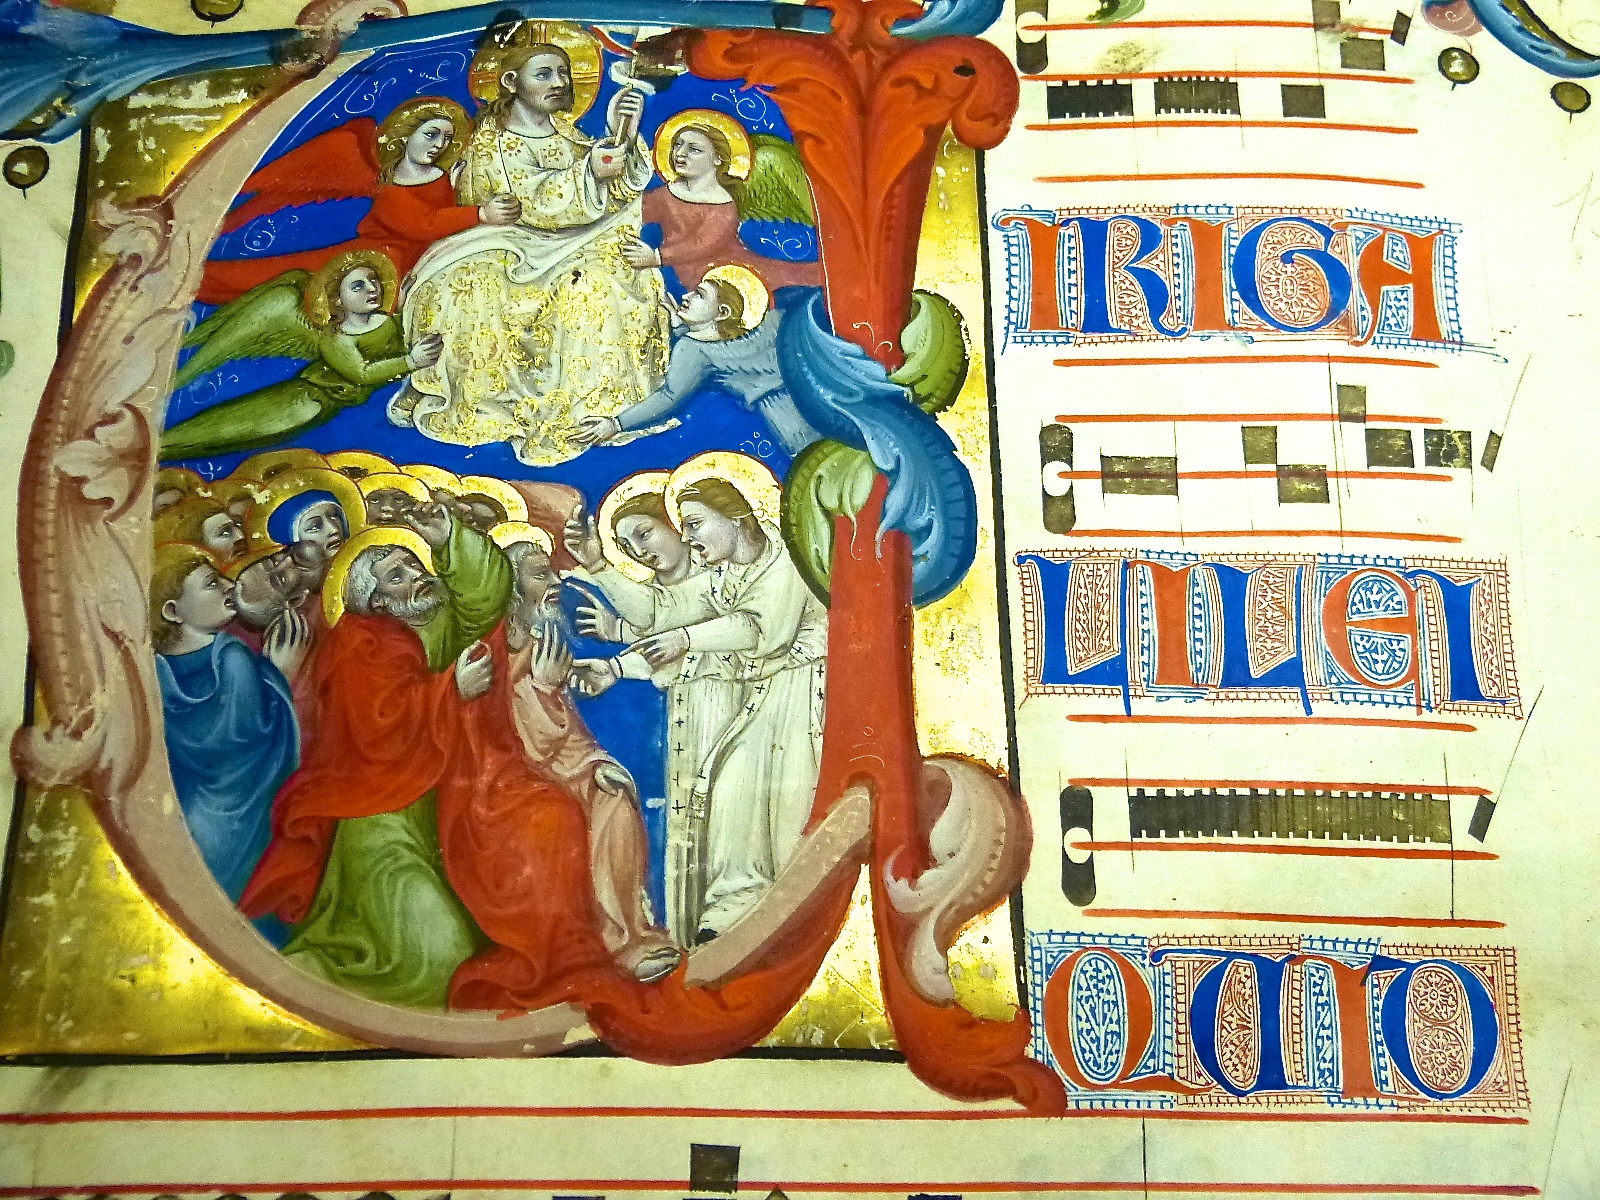 UIRIGA
LILEI
QUID